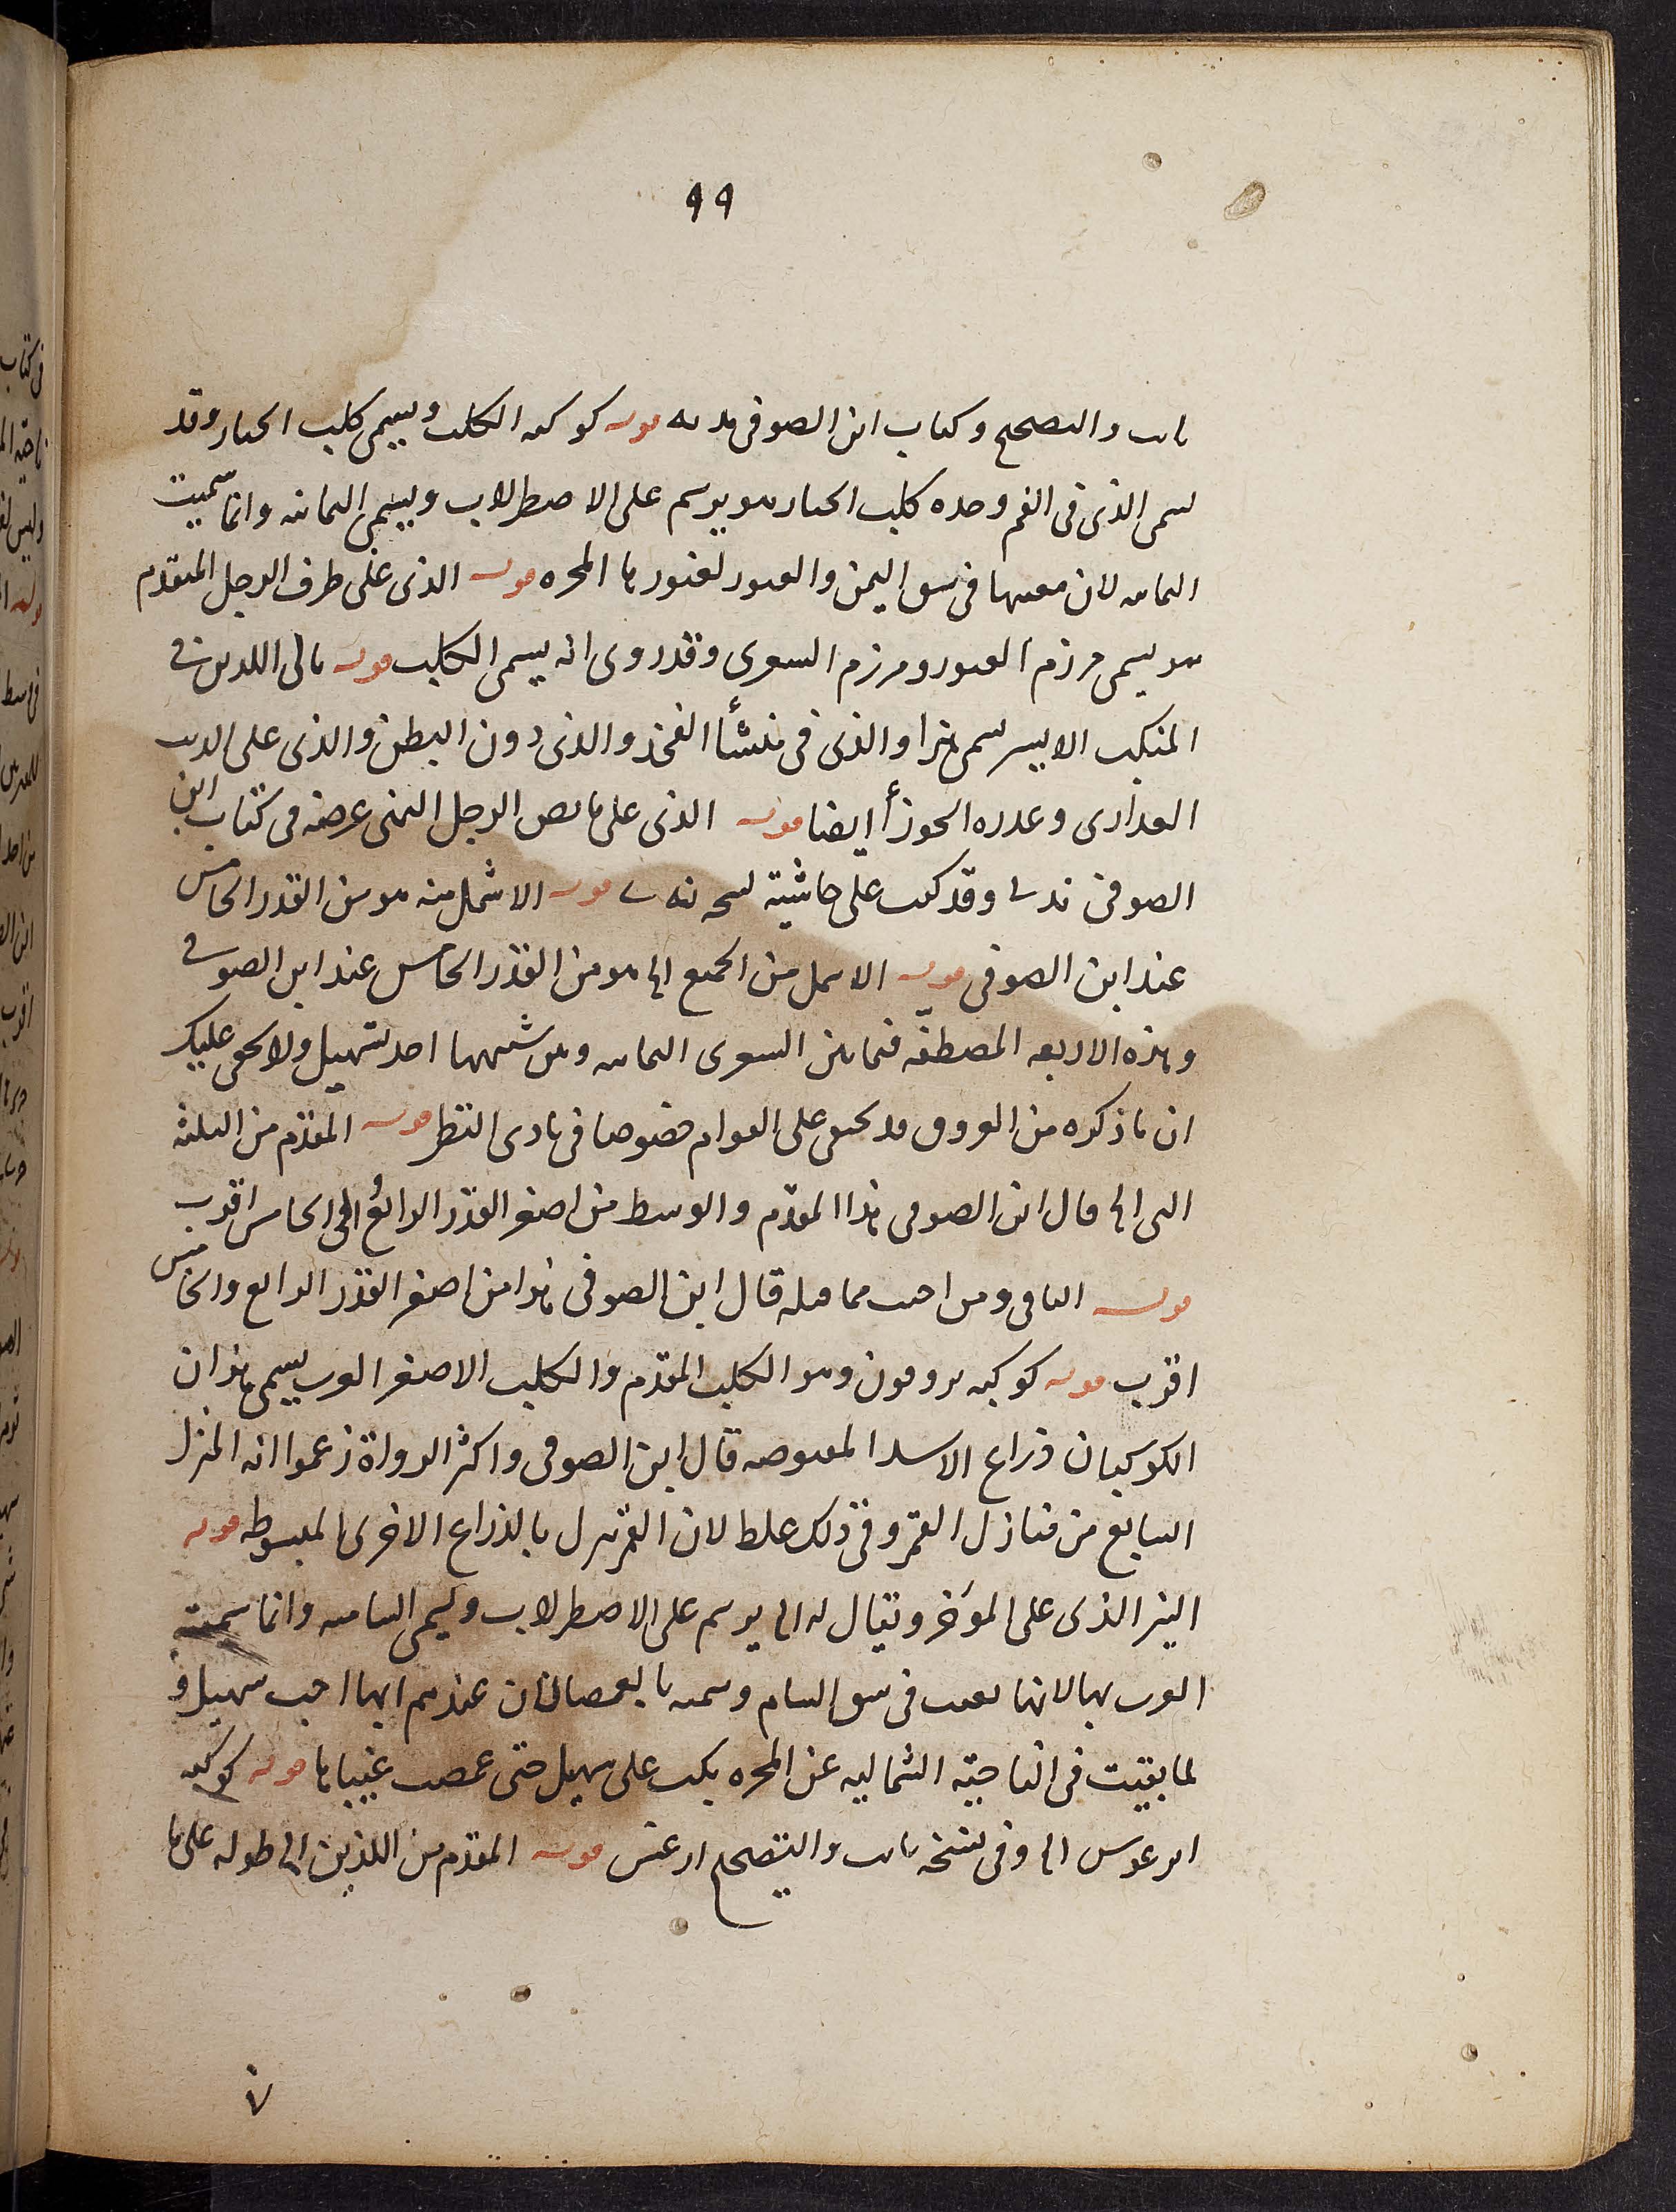 ٩٩
ثابت والتصحيح وكتاب ابن الصوفى قوله كوكبة الكلب ويسمى كلب الجبار وقد
يسمى الذى فى الفم وحده كلب الجبار هو يرسم على الاصطرلاب ويسمى اليمانية وانما سميت
اليمانية لان مغيبها فى شق اليمن والعبور لعبورها المجرة قوله الذى على طرف الرجل المتقدم
هو يسمى مرزم العبور ومرزم الشعرى وقد روى انه يسمى الكلب قوله تالى اللذين فى
المنكب الايسر يسمى هذا والذى فى منشأ الفخذ والذى دون البطن والذى على الذنب
العذارى وعذرة الجوزأ ايضا قوله الذى على الرجل اليمنى عرضه فى كتاب ابن
الصوفى وقد كتب على حاشية نسخة قوله الاشمل منه هو من القدر الخامس
عند ابن الصوفى قوله الاشمل من الجميع الخ هو من القدر الخامس عند ابن الصوفى
وهذه الاربعة المصطفة فيما بين الشعرى اليمانية احد لسهيل ولا يخفى عليك
ان ما ذكره من الفروق قد يخفى على العوام خصوصا فى بادى النظر قوله المتقدم من الثلثة
التى الخ قال ابن الصوفى هذا المتقدم والوسط من اصغر القدر الرابع والى الخامس اقرب
قوله الباقى ومن احب مما قبله قال ابن الصوفى هذا من اصغر القدر الرابع والخامس
اقرب قوله كوكبة بروقون وهو الكلب المتقدم والكلب الاصغر العرب يسمى هذان
الكوكبان ذراع الاسد المقبوضة قال ابن الصوفى واكثر الرواة زعموا انه المنزل
السابع من منازل القمر وفى ذلك غلط لان القمر ينزل بالذراع الاخرى المبسوطة قوله
النير الذى على المؤخر ويقال له الخ يرسم على الاصطرلاب ويسمى الشامية وانما سميته
العرب بها لانها تغيب فى شق الشام وسميه بالغميصا لان عندهم انها احب سهيل و
لما بقيت فى الناحية الشمالية عن المجرة بكت على سهيل حتى غمصت عيناها قوله كوكبة
ارغوس الخ وفى نسخة ثابت والتصحيح ارغس قوله المتقدم من اللذين الخ طوله على ما